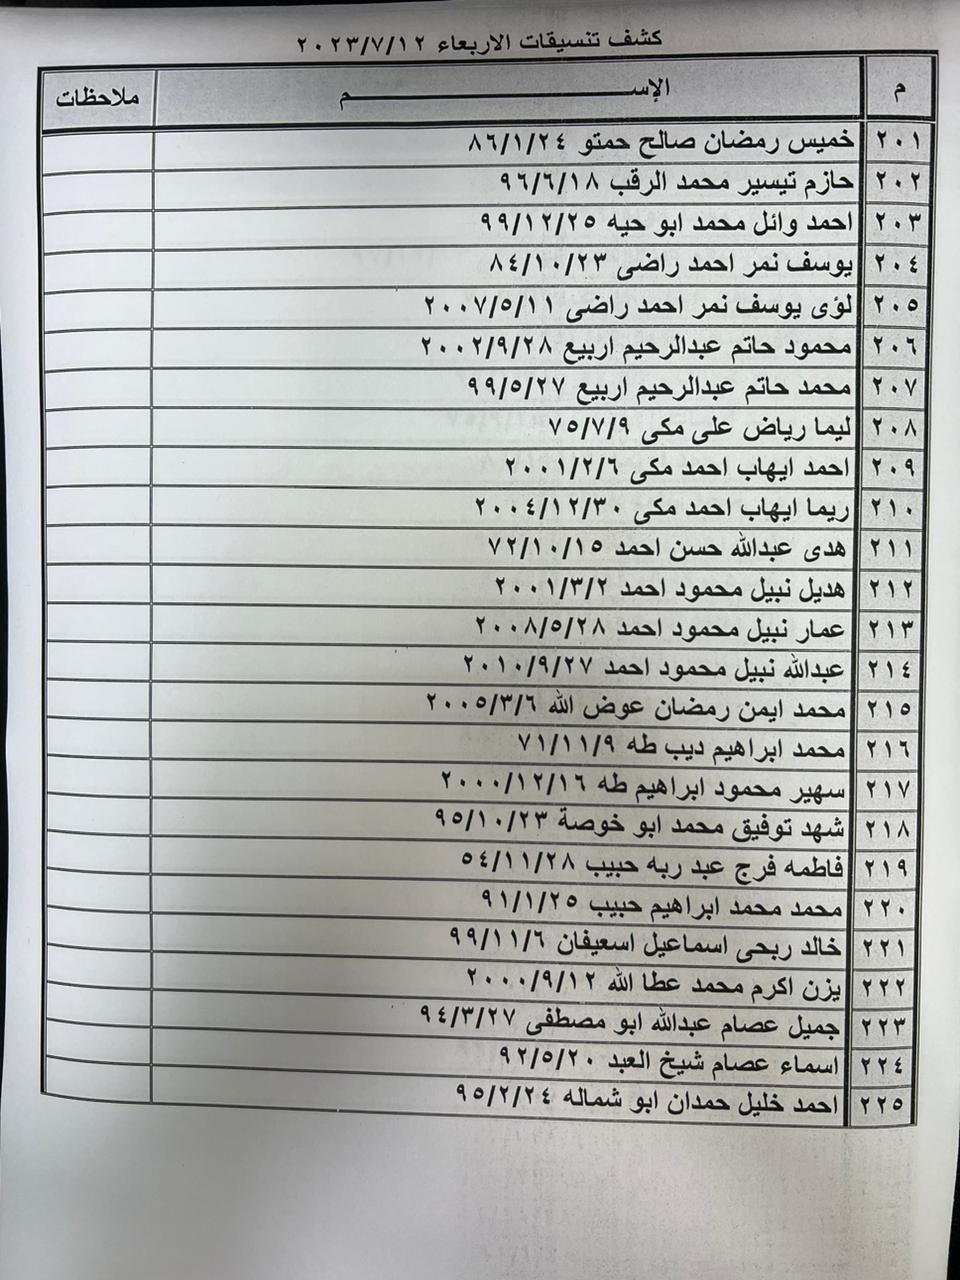 كشف تنسيقات الاربعاء ٢٠٢٣/٧/١٢
م الإســـــــــم ملاحظات
٢٠١ خميس رمضان صالح حمتو ٨٦/١/٢٤
٢٠٢ حازم تيسير محمد الرقب ٩٦/٦/١٨
٢٠٣ احمد وائل محمد ابو حيه ٩٩/١٢/٢٥
٢٠٤ يوسف نمر احمد راضى ٨٤/١٠/٢٣
٢٠٥ لؤى يوسف نمر احمد راضى ٢٠٠٧/٥/١١
٢٠٦ محمود حاتم عبدالرحيم اربيع ٢٠٠٢/٩/٢٨
٢٠٧ محمد حاتم عبدالرحيم اربيع ٩٩/٥/٢٧
٢٠٨ ليما رياض على مكى ٧٥/٧/٩
٢٠٩ احمد ايهاب احمد مكى ٢٠٠١/٢/٦
٢١٠ ريما ايهاب احمد مكى ٢٠٠٤/١٢/٣٠
٢١١ هدى عبدالله حسن احمد ٧٢/١٠/١٥
٢١٢ هديل نبيل محمود احمد ٢٠٠١/٣/٢
٢١٣ عمار نبيل محمود احمد ٢٠٠٨/٥/٢٨
٢١٤ عبدالله نبيل محمود احمد ٢٠١٠/٩/٢٧
٢١٥ محمد ايمن رمضان عوض الله ٢٠٠٥/٣/٦
٢١٦ محمد ابراهيم ديب طه ٧١/١١/٩
٢١٧ سهير محمود ابراهيم طه ٢٠٠٠/١٢/١٦
٢١٨ شهد توفيق محمد ابو خوصة ٩٥/١٠/٢٣
٢١٩ فاطمه فرج عبد ربه حبيب ٥٤/١١/٢٨
٢٢٠ محمد محمد ابراهيم حبيب ٩١/١/٢٥
٢٢١ خالد ربحى اسماعيل اسعيفان ٩٩/١١/٦
٢٢٢ يزن اكرم محمد عطا الله ٢٠٠٠/٩/١٢
٢٢٣ جميل عصام عبدالله ابو مصطفى ٩٤/٣/٢٧
٢٢٤ اسماء عصام شيخ العبد ٩٢/٥/٢٠
٢٢٥ احمد خليل حمدان ابو شماله ٩٥/٢/٢٤